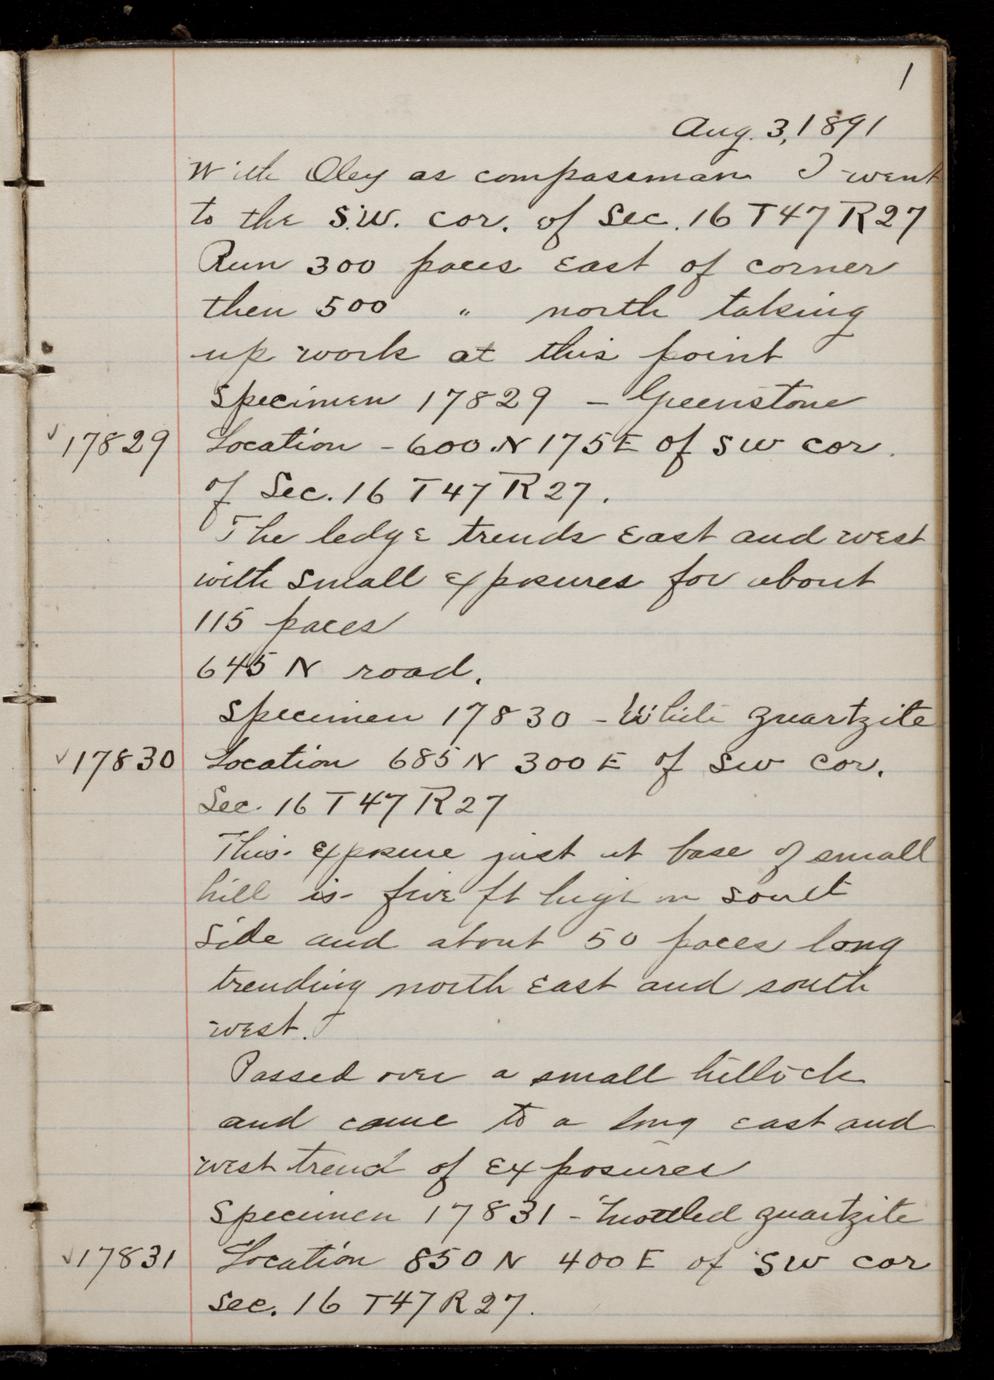 1
Aug. 3, 1891
With Oley as compassman I went
to the S.W. cor. of Sec. 16 T47 R27
Run 300 paces East of corner
then 500 " north taking
up work at this point
Specimen 17829 - Greenstone
✓17829 Location - 600 N 175 E of SW cor.
of Sec. 16 T47 R27.
The ledge trends East and west
with small exposures for about
115 paces
645 N road.
Specimen 17830 - White quartzite
✓17830 Location 685 N 300 E of SW cor.
Sec. 16 T47 R27
This exposure just at base of small
hill is five ft high on south
side and about 50 paces long
trending north East and south
west.
Passed over a small hillock
and came to a long east and
west trend of Exposures
Specimen 17831 - Mottled quartzite
✓17831 Location 850 N 400 E of SW cor
Sec. 16 T47 R27.